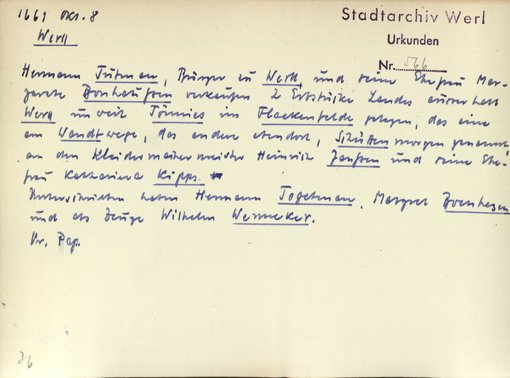 1661 Okt. 8
Werl
Stadtarchiv Werl
Urkunden
Nr. 566
Hermann Tütman, Bürger zu Werl, und seine Ehefrau Mar-
garete verkaufen 2 Erbstücke Landes ausserhalb
Werl unweit Tönnies im Flackenfelde gelegen, das eine
am Wandtwege, das andere ebendort, Schultenmorgen genannt,
an den Kleidermachermeister Heinrich Janssen und seine Ehe-
frau Katharina Kipps.
Unterschrieben haben Hermann Togetman, Margret
und als Zeuge Wilhelm Wenneker.
Or. Pap.
36